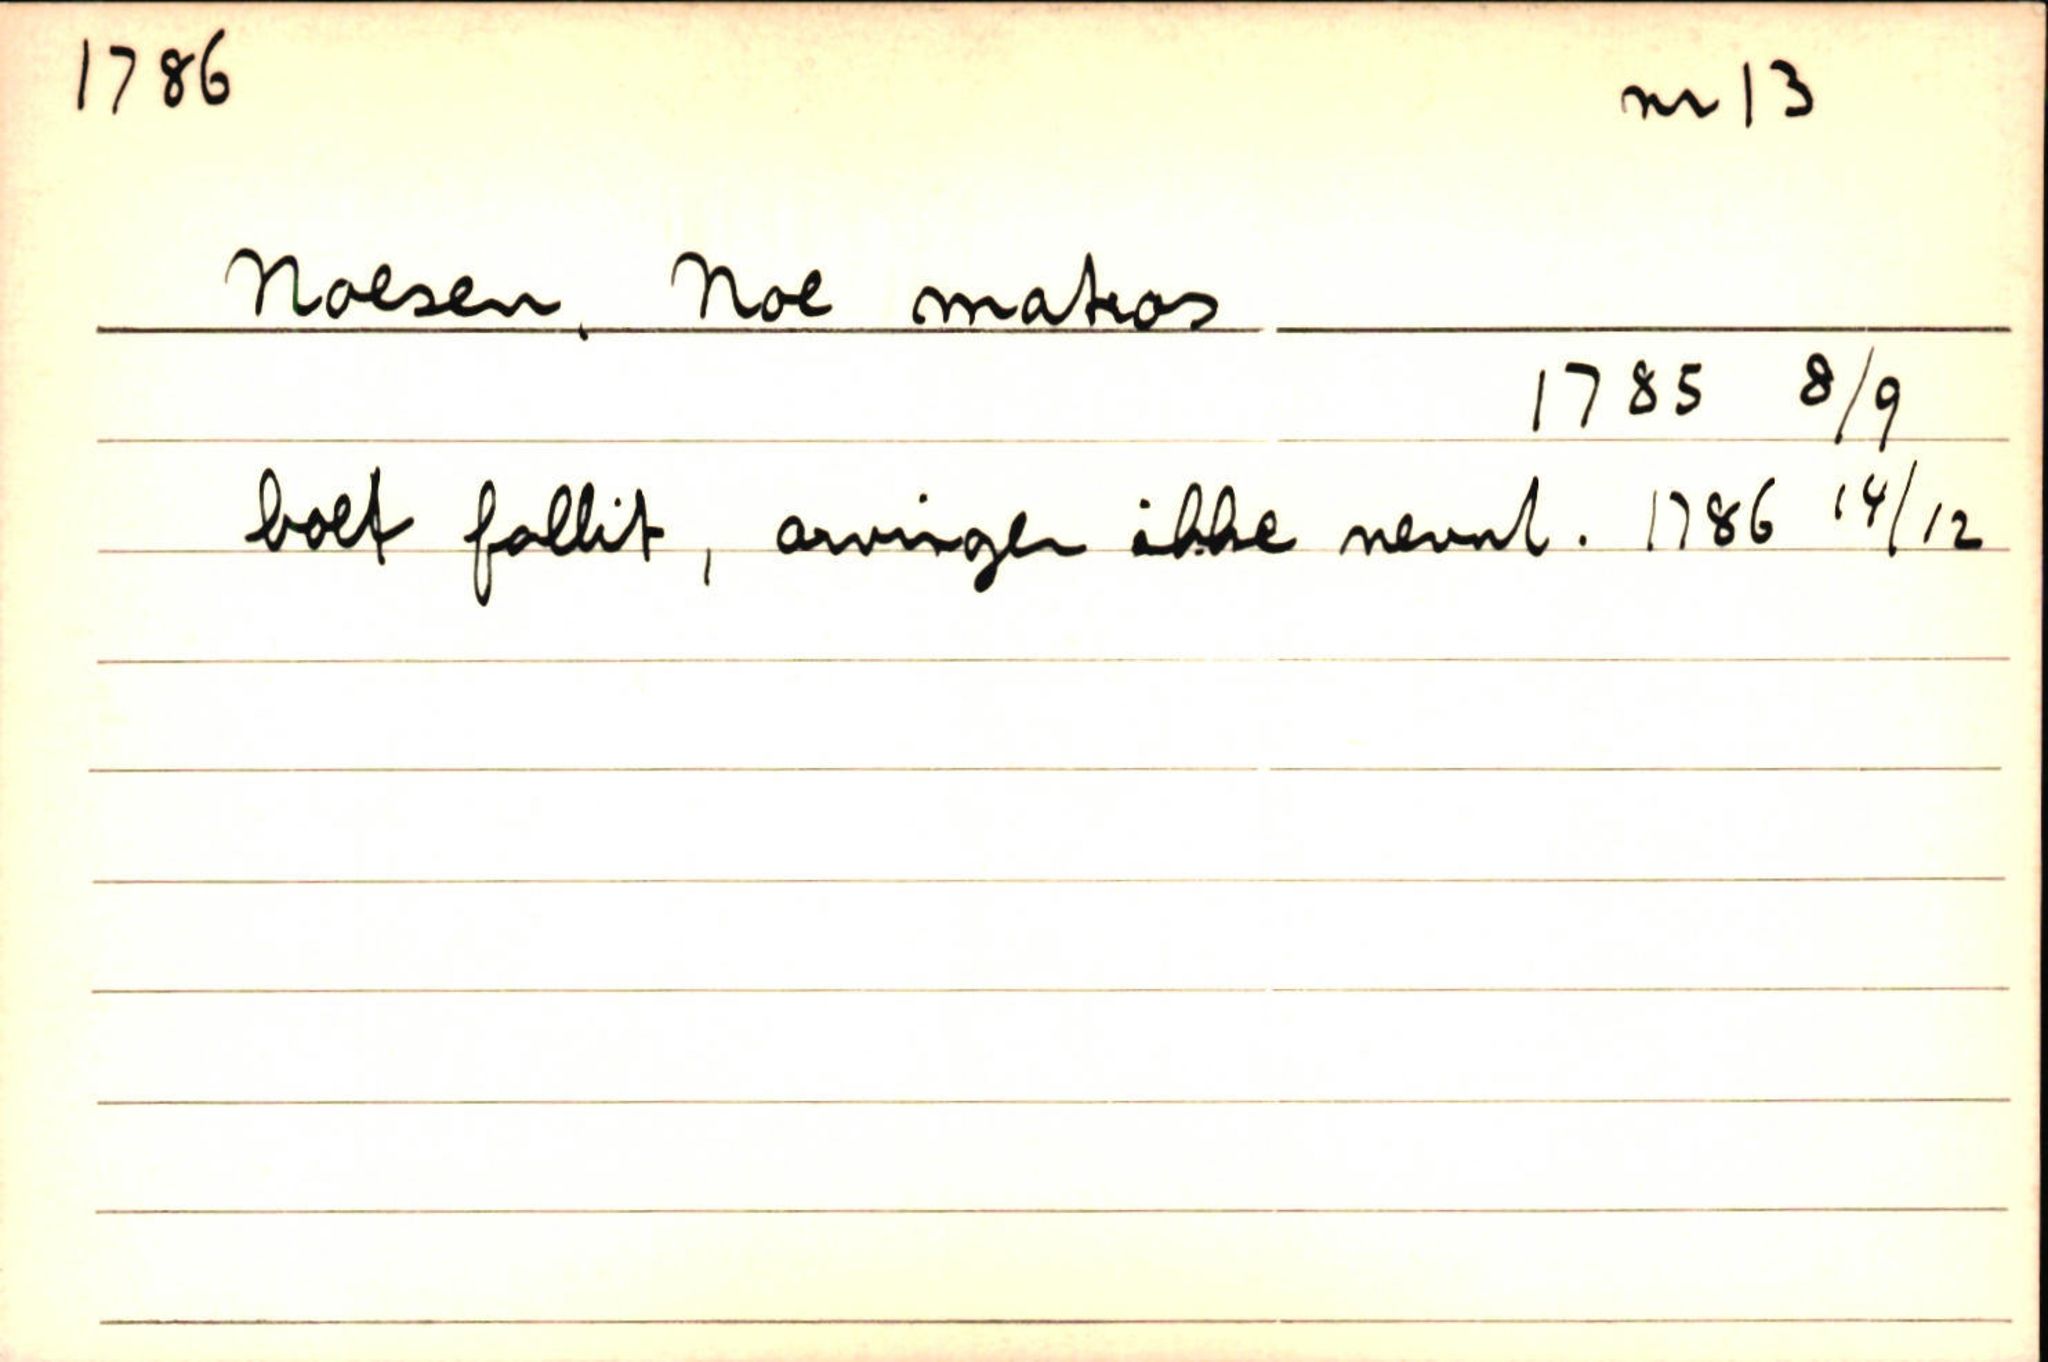 1786 nr 13
Noesen, Noe matros
1785 8/9
boet fallit, arvinger ikke nevnt. 1786 14/12